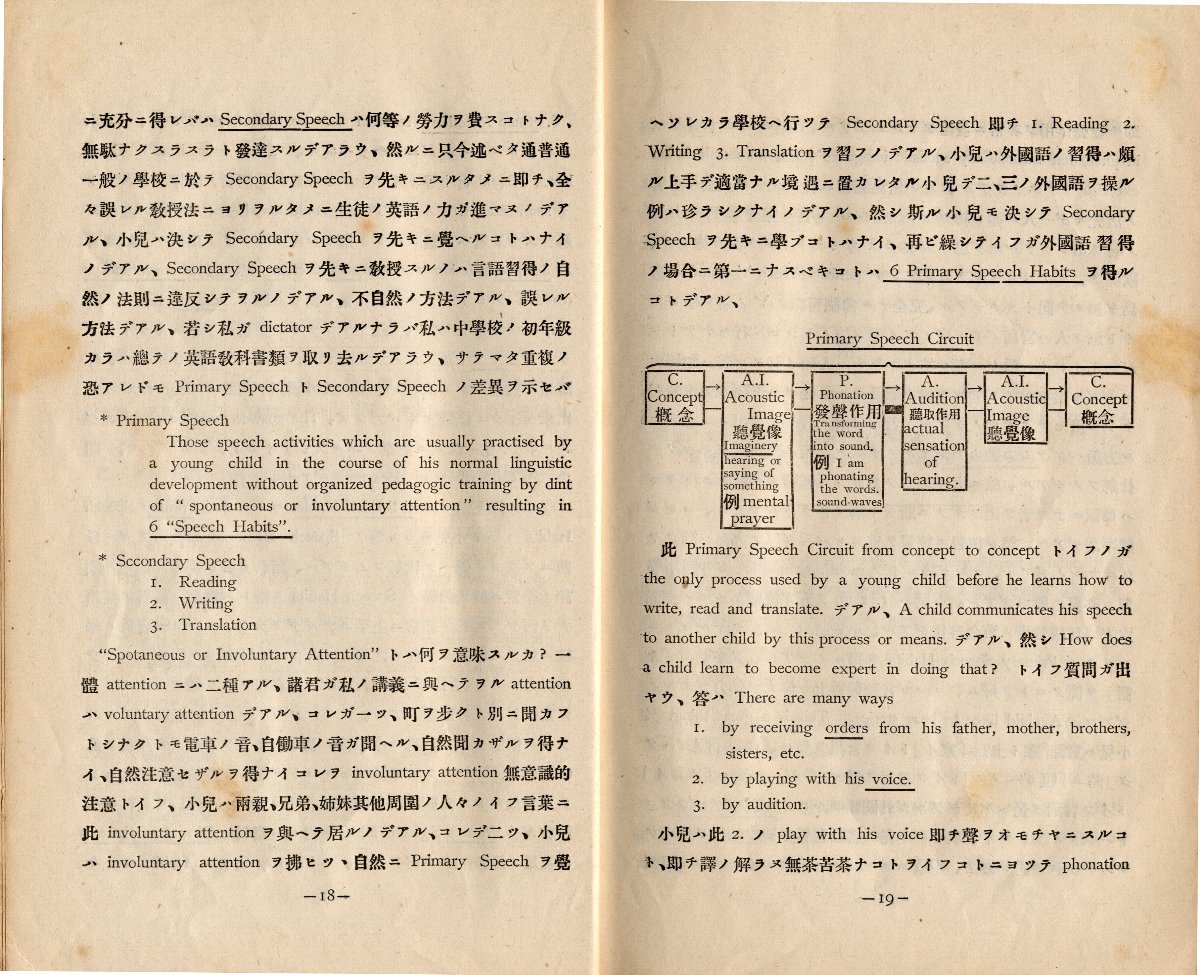 ニ充分ニ得レバハ Secondary Speech ハ何等ノ勞力ヲ費スコトナク、
無駄ナクスラスラト發達スルデアラウ、然ルニ只今述ベタ通普通
一般ノ學校ニ於テ Secondary Speech ヲ先キニスルタメニ即チ、全
々誤レル敎授法ニヨリヲルタメニ生徒ノ英語ノ力ガ進マヌノデア
ル、小兒ハ決シテ Secondary Speech ヲ先キニ覺ヘルコトハナイ
ノデアル、Secondary Speech ヲ先キニ敎授スルノハ言語習得ノ自
然ノ法則ニ違反シテヲルノデアル、不自然ノ方法デアル、誤レル
方法デアル、若シ私ガ dictator デアルナラバ私ハ中學校ノ初年級
カラハ總テノ英語敎科書類ヲ取リ去ルデアラウ、サテマタ重複ノ
恐アレドモ Primary Speech ト Secondary Speech ノ差異ヲ示セバ
* Primary Speech
Those speech activities which are usually practised by
a young child in the course of his normal linguistic
development without organized pedagogic training by dint
of “ spontaneous or involuntary attention” resulting in
6 “Speech Habits”.
* Sccondary Speech
1. Reading
2. Writing
3. Translation
“Spotaneous or Involuntary Attention” トハ何ヲ意味スルカ? 一
體 attention ニハ二種アル、諸君ガ私ノ講義ニ與ヘテヲル attention
ハ voluntary attention デアル、コレガ一ッ、町ヲ步クト別ニ聞カフ
トシナクトモ電車ノ音、自働車ノ音ガ聞ヘル、自然聞カザルヲ得ナ
イ、自然注意セザルヲ得ナイコレヲ involuntary attention 無意識的
注意トイフ、小兒ハ兩親、兄弟、姉妹其他周圍ノ人々ノイフ言葉ニ
此 involuntary attention ヲ與ヘテ居ルノデアル、コレデ二ッ、小兒
ハ involuntary attention ヲ拂ヒツヽ自然ニ Primary Speech ヲ覺
—18—
ヘソレカラ學校ヘ行ツテ Secondary Speech 即チ 1. Reading 2.
Writing 3. Translation ヲ習フノデアル、小兒ハ外國語ノ習得ハ頗
ル上手デ適當ナル境遇ニ置カレタル小兒デ二、三ノ外國語ヲ操ル
例ハ珍ラシクナイノデアル、然シ斯ル小兒モ決シテ Secondary
Speech ヲ先キニ學ブコトハナイ、再ビ繰シテイフガ外國語習得
ノ場合ニ第一ニナスベキコトハ 6 Primary Speech Habits ヲ得ル
コトデアル、
Primary Speech Circuit
C.
Concept
概念
A.I.
Acoustic
Image
聽覺像
Imaginery
hearing or
saying of
something
例 mental
prayer
P.
Phonation
發聲作用
Transforming
the word
into sound.
例 I am
phonating
the words.
sound-waves
A.
Audition
聽取作用
actual
sensation
of
hearing.
A.I.
Acoustic
Image
聽覺像
C.
Concept
概念
此 Primary Speech Circuit from concept to concept トイフノガ
the only process used by a young child before he learns how to
write, read and translate. デアル、A child communicates his speech
to another child by this process or means. デアル、然シ How does
a child learn to become expert in doing that? トイフ質問ガ出
ヤウ、答ハ There are many ways
1. by receiving orders from his father, mother, brothers,
sisters, etc.
2. by playing with his voice.
3. by audition.
小兒ハ此 2. ノ play with his voice 即チ聲ヲオモチャニスルコ
ト、即チ譯ノ解ラヌ無茶苦茶ナコトヲイフコトニヨツテ phonation
—19—